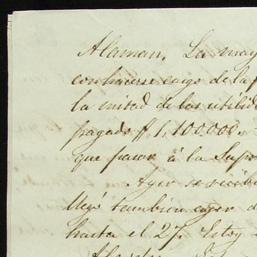 Alaman. La may
continuase cargo de la p
la mitad de las utilid
pagado $1,100.000.
que pasar á la Supo
Ayer se recibi
Llegó tambien ayer d
hasta el 27. Estoy